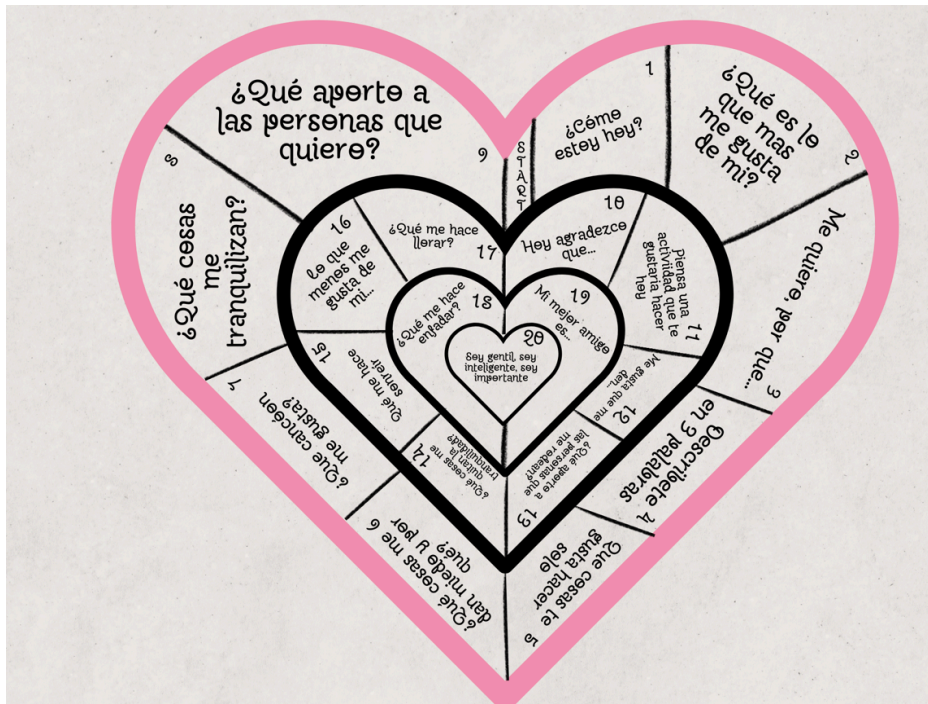 START
1
¿Cómo
estoy hoy?
2
¿Qué es lo
que mas
me gusta
de mi?
3
Me quiero, por que...
4
Descríbete
en 3 palabras
5
Que cosas te
gusta hacer
solo
6
¿Qué cosas me
dan miedo y por
qué?
7
¿Que cancóon
me gusta?
8
¿Qué cosas
me
tranquilizan?
9
¿Qué aporto a
las personas que
quiero?
10
Hoy agradezco
que...
11
Piensa una
activiidad que te
gustaria hacer
hoy
12
Me gusta que me
den...
13
¿Qué aporto a
las personas que
me rodean?
14
¿Qué cosas me
quitan la
tranquilidad?
15
Qué me hace
sonreir
16
Lo que
menos me
gusta de
mi...
17
¿Qué me hace
llorar?
18
¿Qué me hace
enfadar?
19
Mi mejor amigo
es...
20
Soy gentil, soy
inteligente, soy
importante